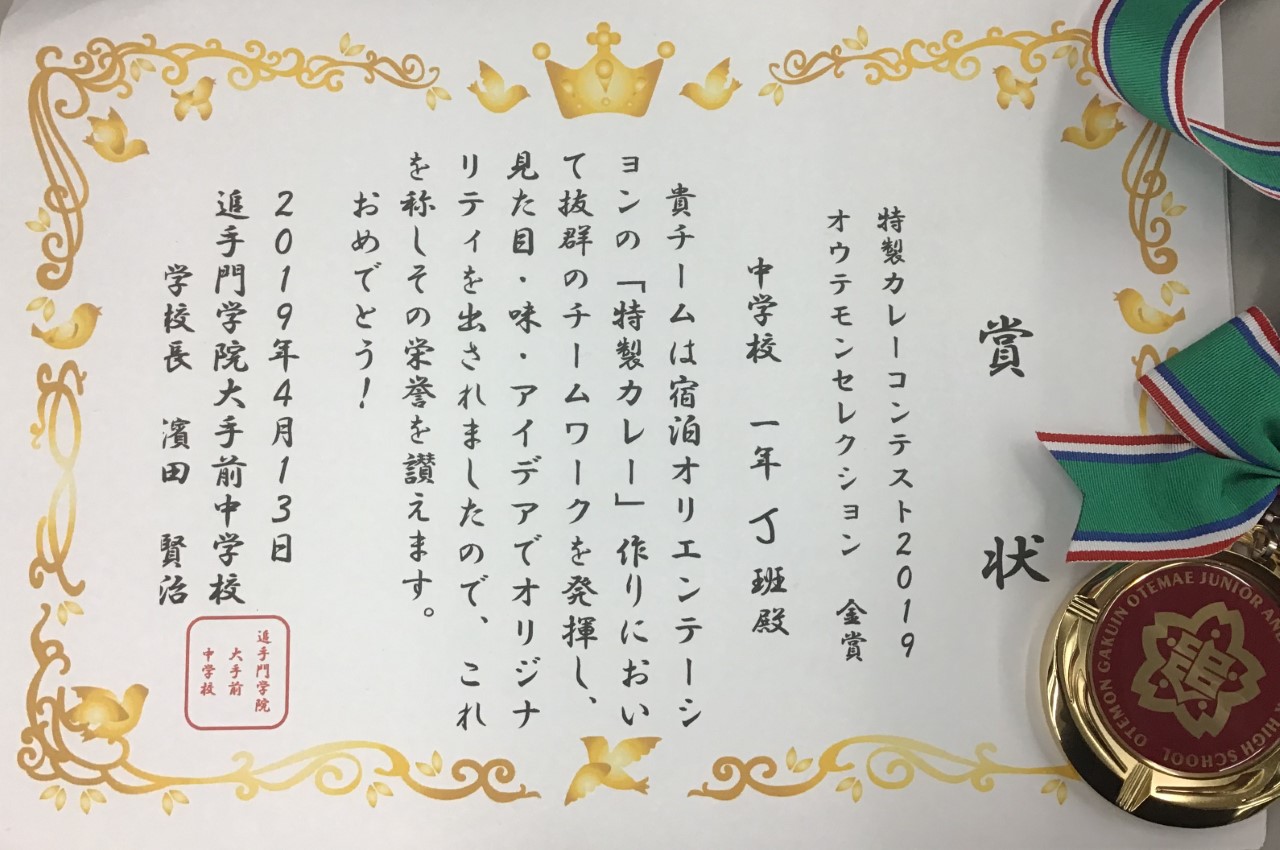 賞状
特製カレーコンテスト2019
オウテモンセレクション 金賞
中学校 一年 丁班殿
貴チームは宿泊オリエンテーシ
ョンの「特製カレー」作りにおい
て抜群のチームワークを発揮し、
見た目・味・アイデアでオリジナ
リティを出されましたので、これ
を称しその栄誉を讃えます。
おめでとう!
2019年4月13日
追手門学院大手前中学校
学校長 濱田 賢治
追手門学院
大手前
中学校
OTEMON GAKUIN OTEMAE JUNIOR AND
HIGH SCHOOL